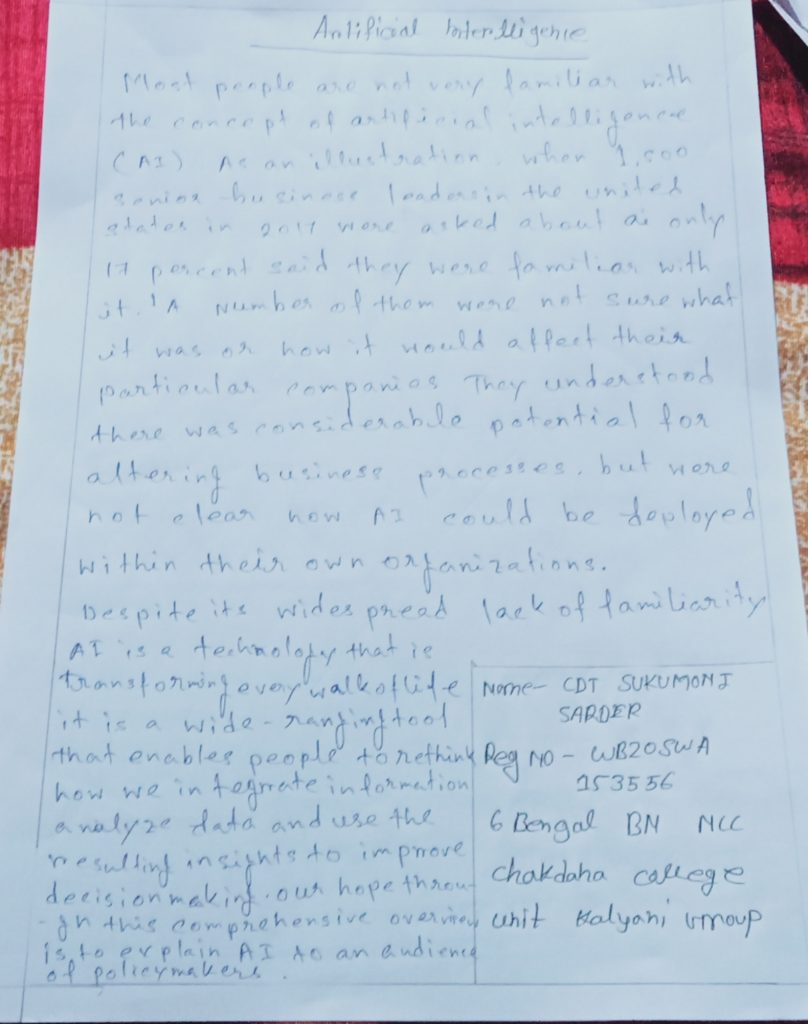 Artificial Intelligence
Most people are not very familiar with
the concept of artificial intelligence
(AI) As an illustration, when 1,500
senior business leaders in the united
states in 2017 were asked about ai only
17 percent said they were familiar with
it. 1 A number of them were not sure what
it was or how it would affect their
particular companies They understood
there was considerable potential for
altering business processes, but were
not clear how AI could be deployed
within their own organizations.
Despite its widespread lack of familiarity
AI is a technology that is
transforming every walk of life
it is a wide-ranging tool
that enables people to rethink
how we integrate information
analyze data and use the
resulting insights to improve
decision making. our hope throu-
-gh this comprehensive overview
is to explain AI to an audience
of policymakers.
Name- CDT SUKUMONI
SARDER
Reg NO - WB20SWA
153556
6 Bengal BN NCC
chakdaha college
unit Kalyani Group